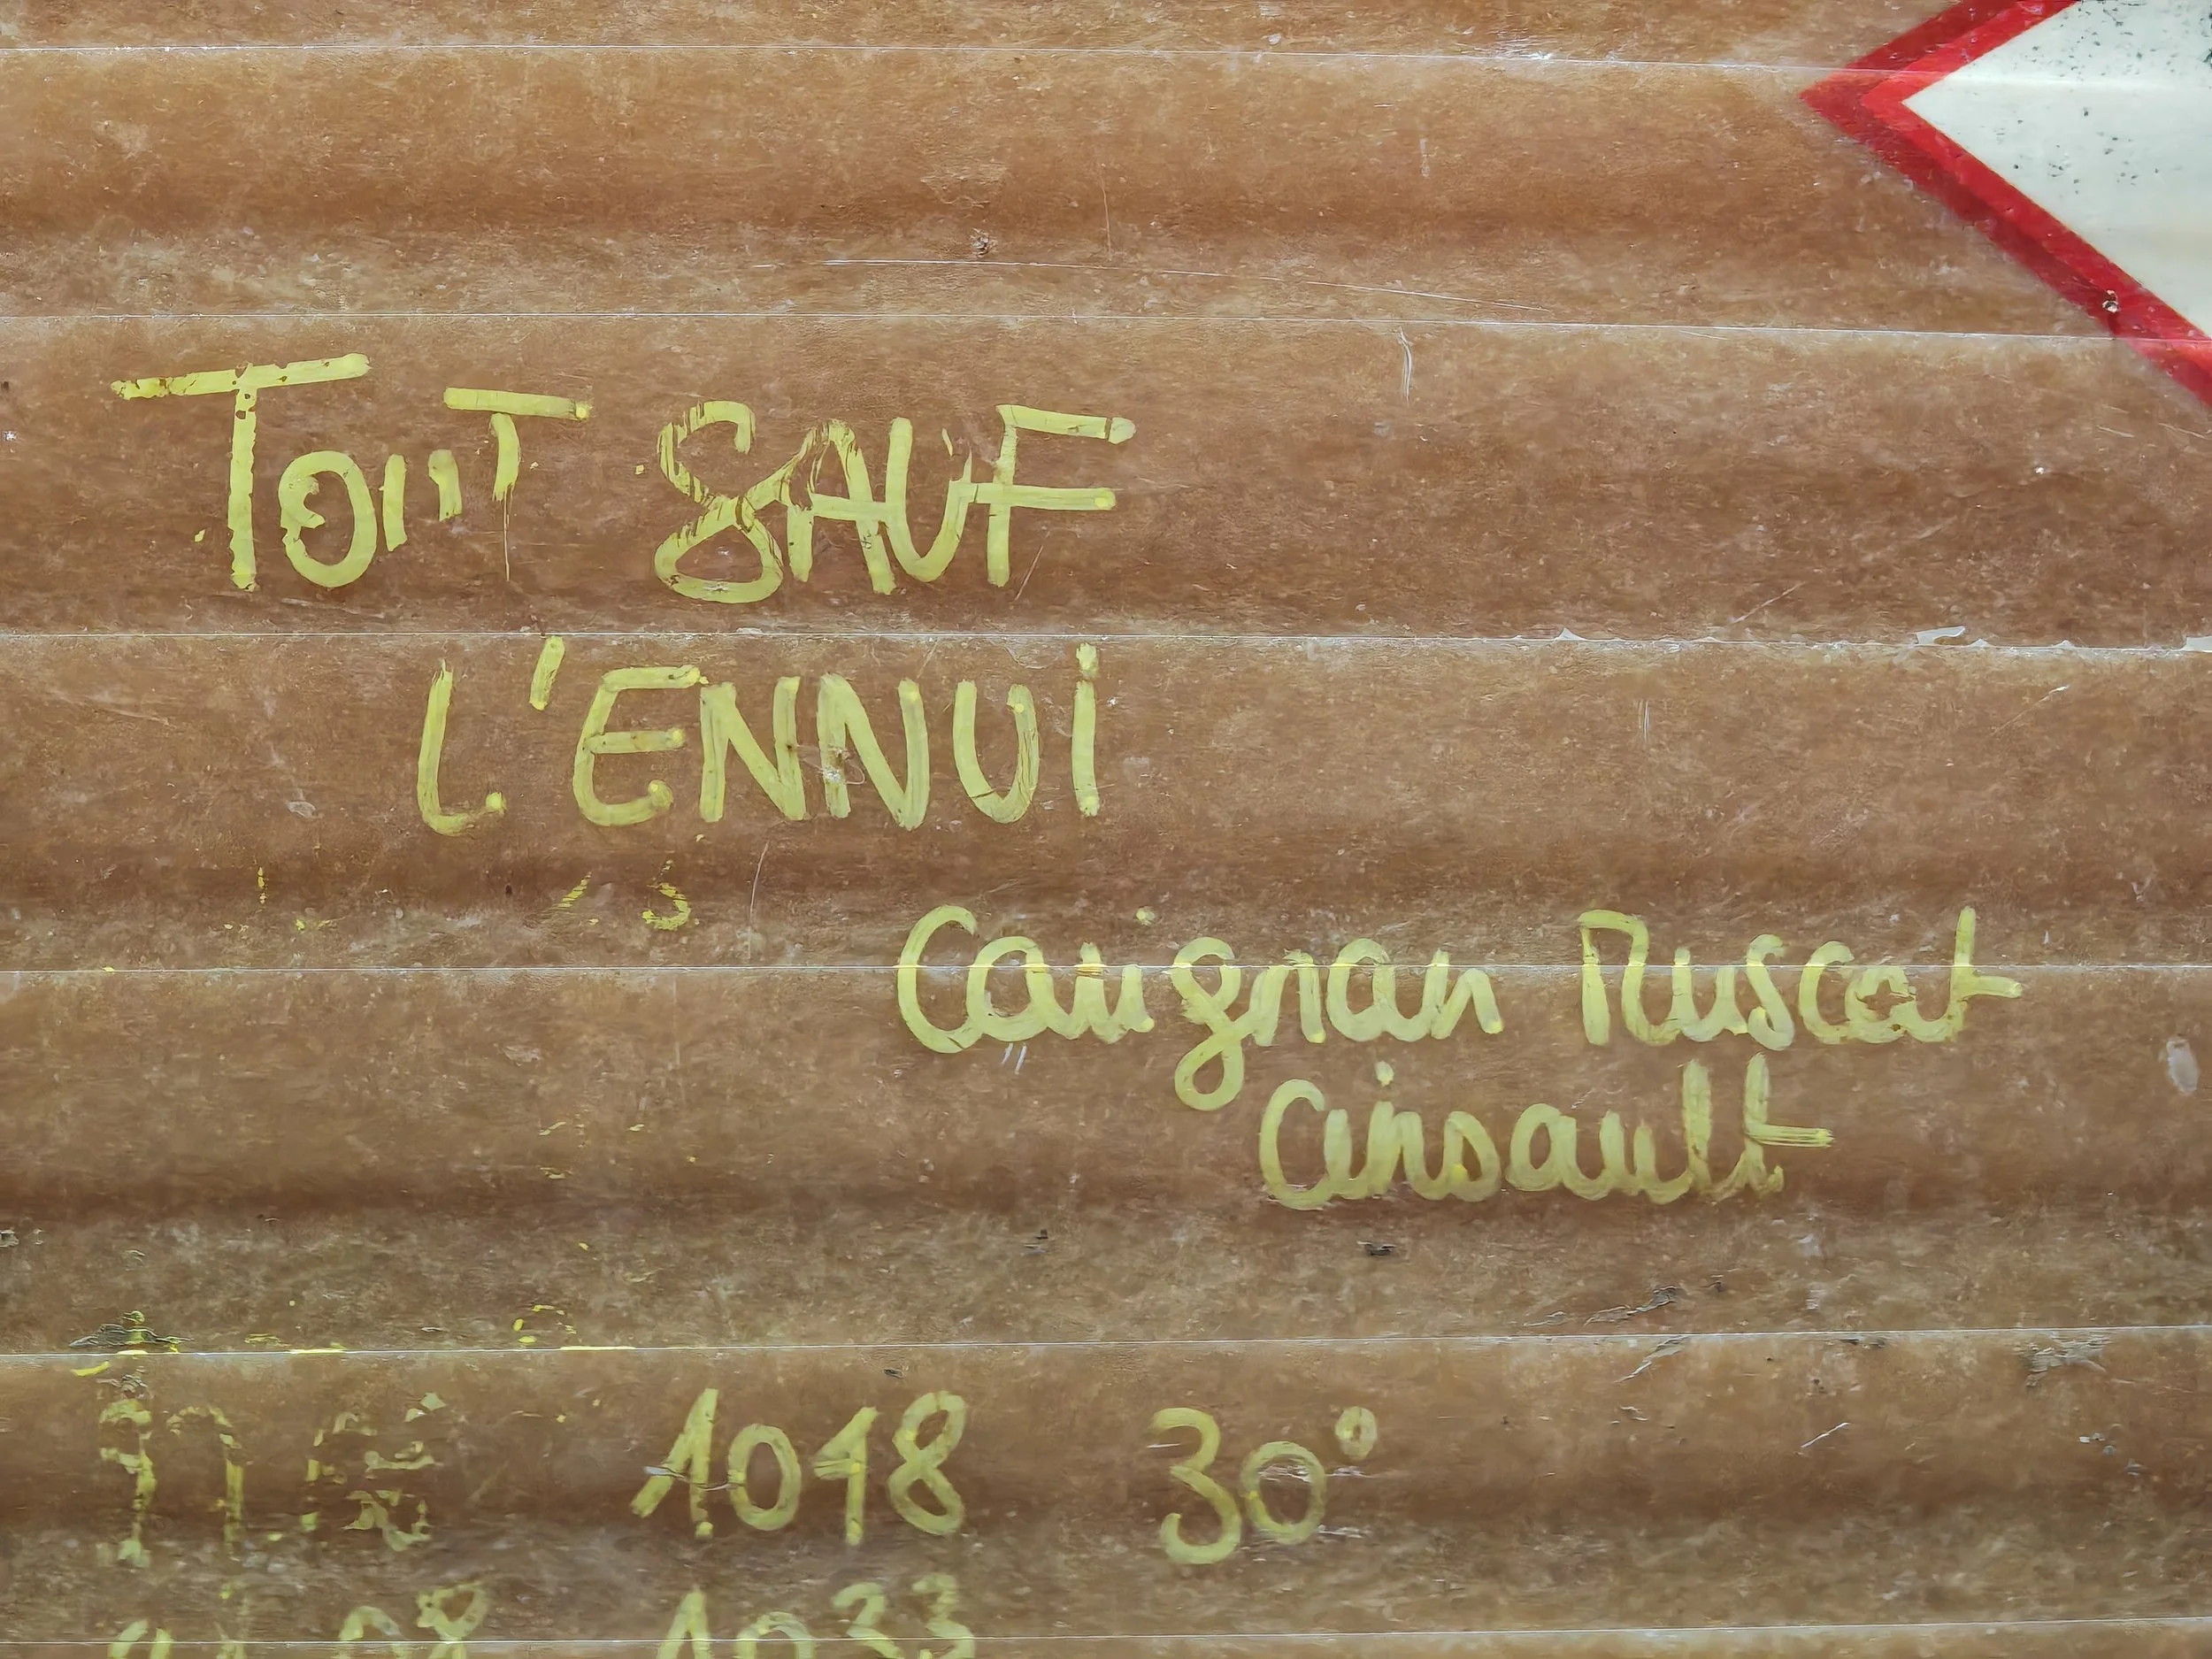 TOUT SAUF
L'ENNUI
Carignan Muscat
Cinsault
1048 30°
08 1033